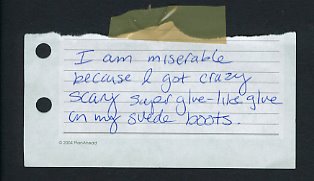 I am miserable
because I got crazy
scary super glue-like glue
on my suede boots.
© 2004 PlanAhead